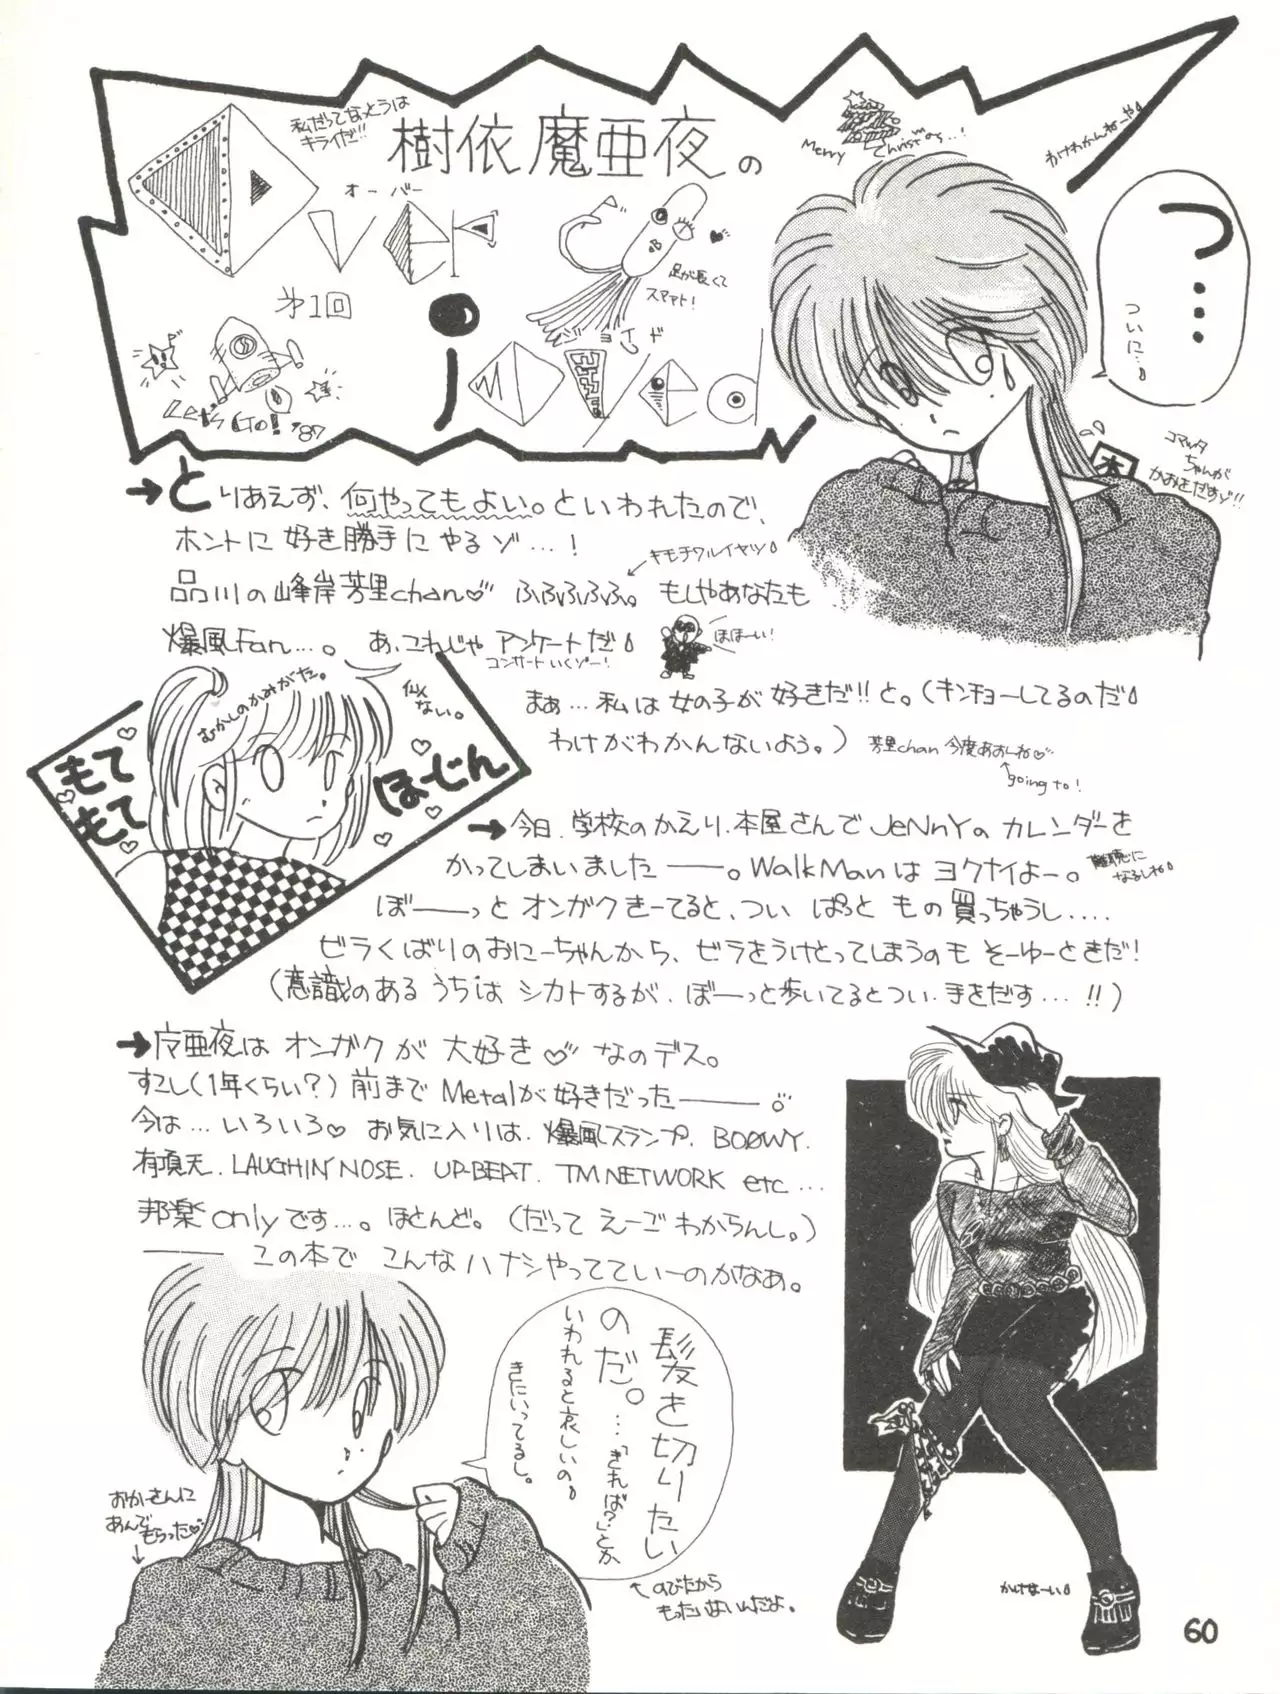 私だってなっとうは
キライだ!!
樹依魔亜夜の
オーバー
第1回
Merry Christmas...!
わけわかんねーや
足が長くて
スマアト!
Let's Go! '87
つ…
ついに…
コマッタ
ちゃんが
かおをだすゾ!!
とりあえず、何やってもよい。といわれたので、
ホントに好き勝手にやるゾ…!
キモチワルイヤツ
品川の峰岸芳里chan♡ ふふふふふ。もしやあなたも
爆風Fan…。あ、これじゃアンケートだ
コンサートいくゾー!
ほほーい!
まぁ…私は女の子が好きだ!!と。(キンチョーしてるのだ
わけがわかんないよう。)
芳里chan 今度あおしね♡
going to!
むかしのかみがた。
似てない。
もてもて
ほーじん
今日、学校のかえり、本屋さんでJeNnYのカレンダーを
かってしまいました——。WalkManはヨクナイよー。
難聴に
なるしね
ぼ——っとオンガクきーてると、つい ぱっと もの買っちゃうし....
ビラくばりのおにーちゃんから、ビラをうけとってしまうのもそーゆーときだ!
(意識のあるうちはシカトするが、ぼーっと歩いてるとつい、手をだす…!!)
魔亜夜はオンガクが大好き♡なのデス。
すこし(1年くらい?)前までMetalが好きだった——。
今は…いろいろ♡ お気に入りは、爆風スランプ、BOØWY、
有頂天、LAUGHIN'NOSE、UP-BEAT、TM NETWORK etc…
邦楽onlyです…。ほとんど。(だってえーごわからんし。)
——この本でこんなハナシやってていーのかなぁ。
髪を切りたい
のだ。…「きれば?」とか
いわれると哀しいの
きにいってるし。
のびたから
もったいないんだよ。
おかーさんに
あんで
もらった♡
60